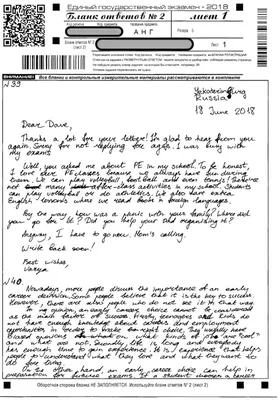 Единый государственный экзамен - 2018
Бланк ответов № 2
лист 1
АНГ
ВНИМАНИЕ!
Все бланки и контрольные измерительные материалы рассматриваются в комплекте
N 39
Yekaterinburg
Russia
18 June 2018
Dear Dave,
Thanks a lot for your letter! I'm glad to hear from you
again. Sorry for not replying for ages. I was busy with
my exams.
Well, you asked me about PE in my school. To be honest,
I love our PE classes because we always have fun during
them. We can play volleyball, football and even tennis! Besides
many after-class activities in my school. Students
can play volleyball or do activities. We also have extra
English lessons where we read books in foreign languages.
By the way how was a picnic with your family? Where did
you go on it? Did you help your dad organising it?
Anyway, I have to go now. Mom's calling.
Write back soon!
Best wishes,
Varya
N 40
Nowadays more people discuss the importance of an early
career decision. Some people believe that it is the key to success.
However, there are also people who do not see it that way.
In my opinion, an early career choice cannot be considered
as the main factor of success. Firstly, teenagers and kids do
not have enough knowledge about careers and employment
opportunities in order to make the right choice. They usually have
what kinds of jobs are "cool"
and what are not. Secondly, life is long and everybody
has enough time to gain experience. It is a that helps
people to understand what they love and what they want to
do for living.
On the other hand, an early career choice can help in
preparation for entrance exams. If a student chooses a career
Оборотная сторона бланка НЕ ЗАПОЛНЯЕТСЯ. Используйте бланк ответов № 2 (лист 2)